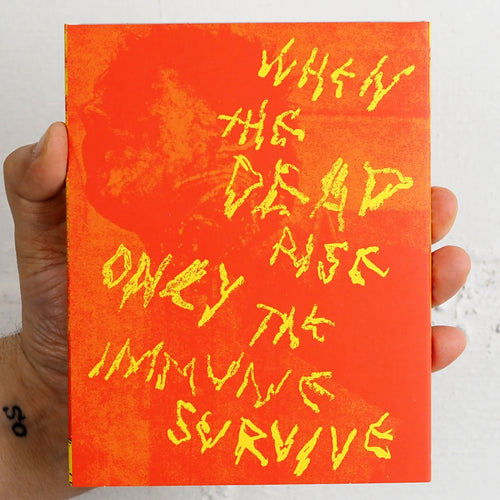 WHEN
THE
DEAD
RISE
ONLY
THE
IMMUNE
SURVIVE